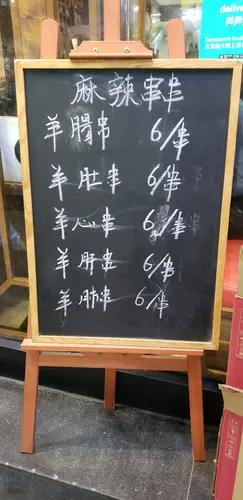 麻辣串串
羊腸串 6/串
羊肚串 6/串
羊心串 6/串
羊肝串 6/串
羊肺串 6/串